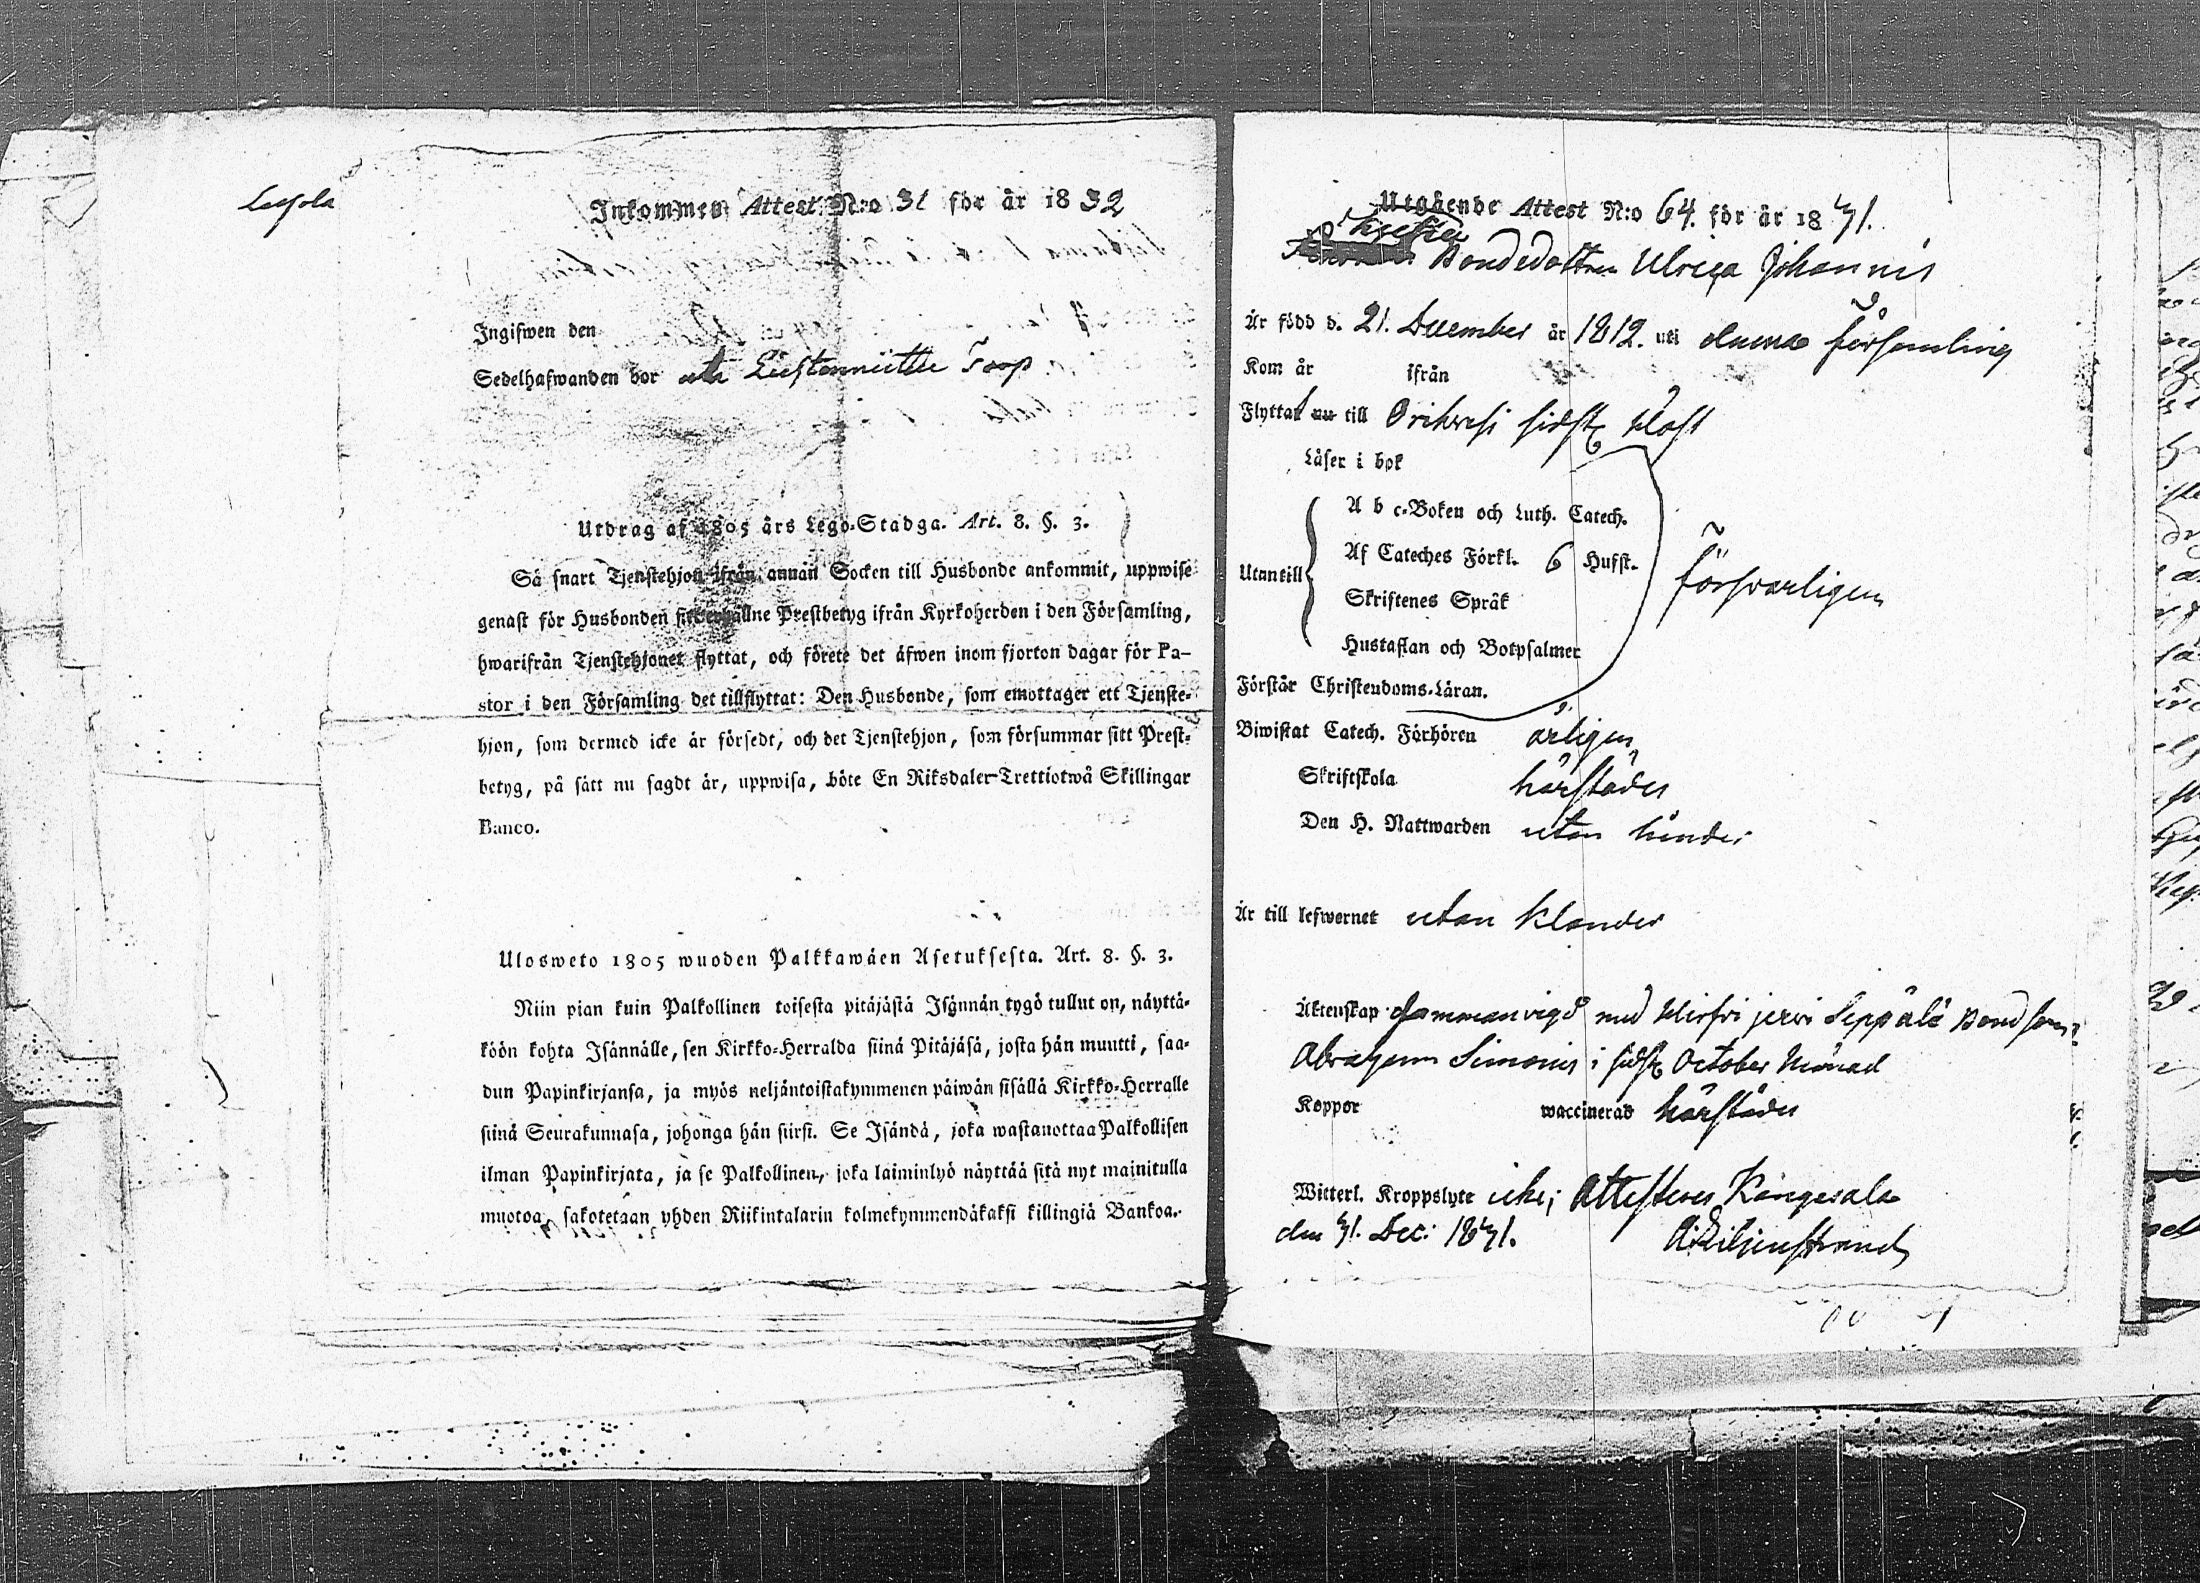 Inkommen Attest N:o 31 för år 1832
Ingifwen den
Sedelhafwanden bor Torp
Utdrag af 1805 års Lego-Stadga. Art. 8. §. 3.
Så snart Tjenstehjon ifrån annan Socken till Husbonde ankommit, uppwise
genast för Husbonden sitt erhållne Prestbetyg ifrån Kyrkoherden i den Församling,
hwarifrån Tjenstehjonet flyttat, och förete det äfwen inom fjorton dagar för Pa-
stor i den Församling det tillflyttat: Den Husbonde, som emottager ett Tjenste-
hjon, som dermed icke är försedt, och det Tjenstehjon, som försummar sitt Prest-
betyg, på sätt nu sagdt är, uppwisa, böte En Riksdaler Trettiotwå Skillingar
Banco.
Ulosweto 1805 wuoden Palkkawäen Asetuksesta. Art. 8. §. 3.
Niin pian kuin Palkollinen toisesta pitäjästä Isännän tygö tullut on, näyttä-
köön kohta Isännälle, sen Kirkko-Herralda siinä Pitäjäsä, josta hän muutti, saa-
dun Papinkirjansa, ja myös neljäntoistakymmenen päiwän sisällä Kirkko-Herralle
siinä Seurakunnasa, johonga hän siirsi. Se Isändä, joka wastanottaa Palkollisen
ilman Papinkirjata, ja se Palkollinen, joka laiminlyö näyttää sitä nyt mainitulla
muotoa, sakotetaan yhden Riikintalarin kolmekymmendäkaksi killingiä Bankoa.
Utgående Attest N:o 64. för år 1831.
Bondedottren Ulrica Johannis
Är född d. 21. December år 1812. uti denna församling
Kom år ifrån
Flyttat nu till Orihvesi sidstl. höst
Läser i bok
A b c-Boken och Luth. Catech.
Utantill Af Cateches Förkl. 6 Hufst. försvarligen
Skriftenes Språk
Hustaflan och Botpsalmer
Förstår Christendoms-Läran.
Biwistat Catech. Förhören årligen
Skriftskola härstädes
Den H. Nattwarden utan hinder
Är till lefwernet utan klander
Äktenskap Sammanvigd med Hirsijerwi Seppälä Bondson
Abraham Simonis i sidstl. October Månad
Koppor waccinerad härstädes
Witterl. Kroppslyte icke; Attesteres Kangasala
den 31. Dec: 1831. A: Liljenstrand